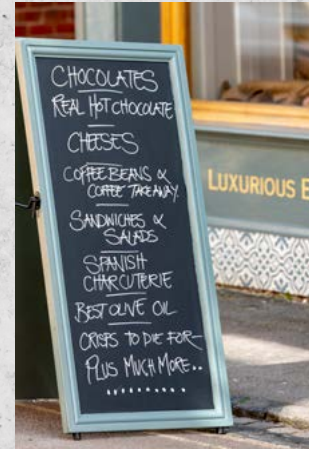 CHOCOLATES
REAL HOT CHOCOLATE
CHEESES
COFFEE BEANS &
COFFEE TAKEAWAY.
SANDWICHES &
SALADS
SPANISH
CHARCUTERIE
BEST OLIVE OIL
CRISPS TO DIE FOR—
PLUS MUCH MORE..
..........
LUXURIOUS